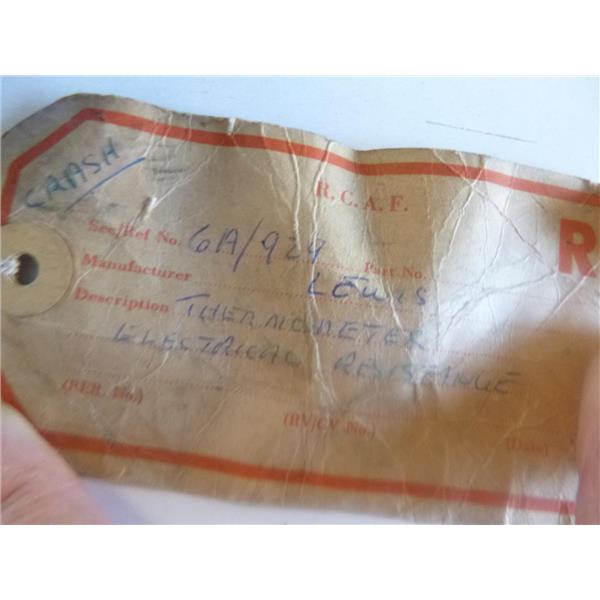 CRASH
R.C.A.F.
R
Sec/Ref No. 6A/929 Part No.
Manufacturer LEWIS
Description THERMOMETER
ELECTRICAL RESISTANCE
(RER. No.)
(RV/CV No.)
(Date)